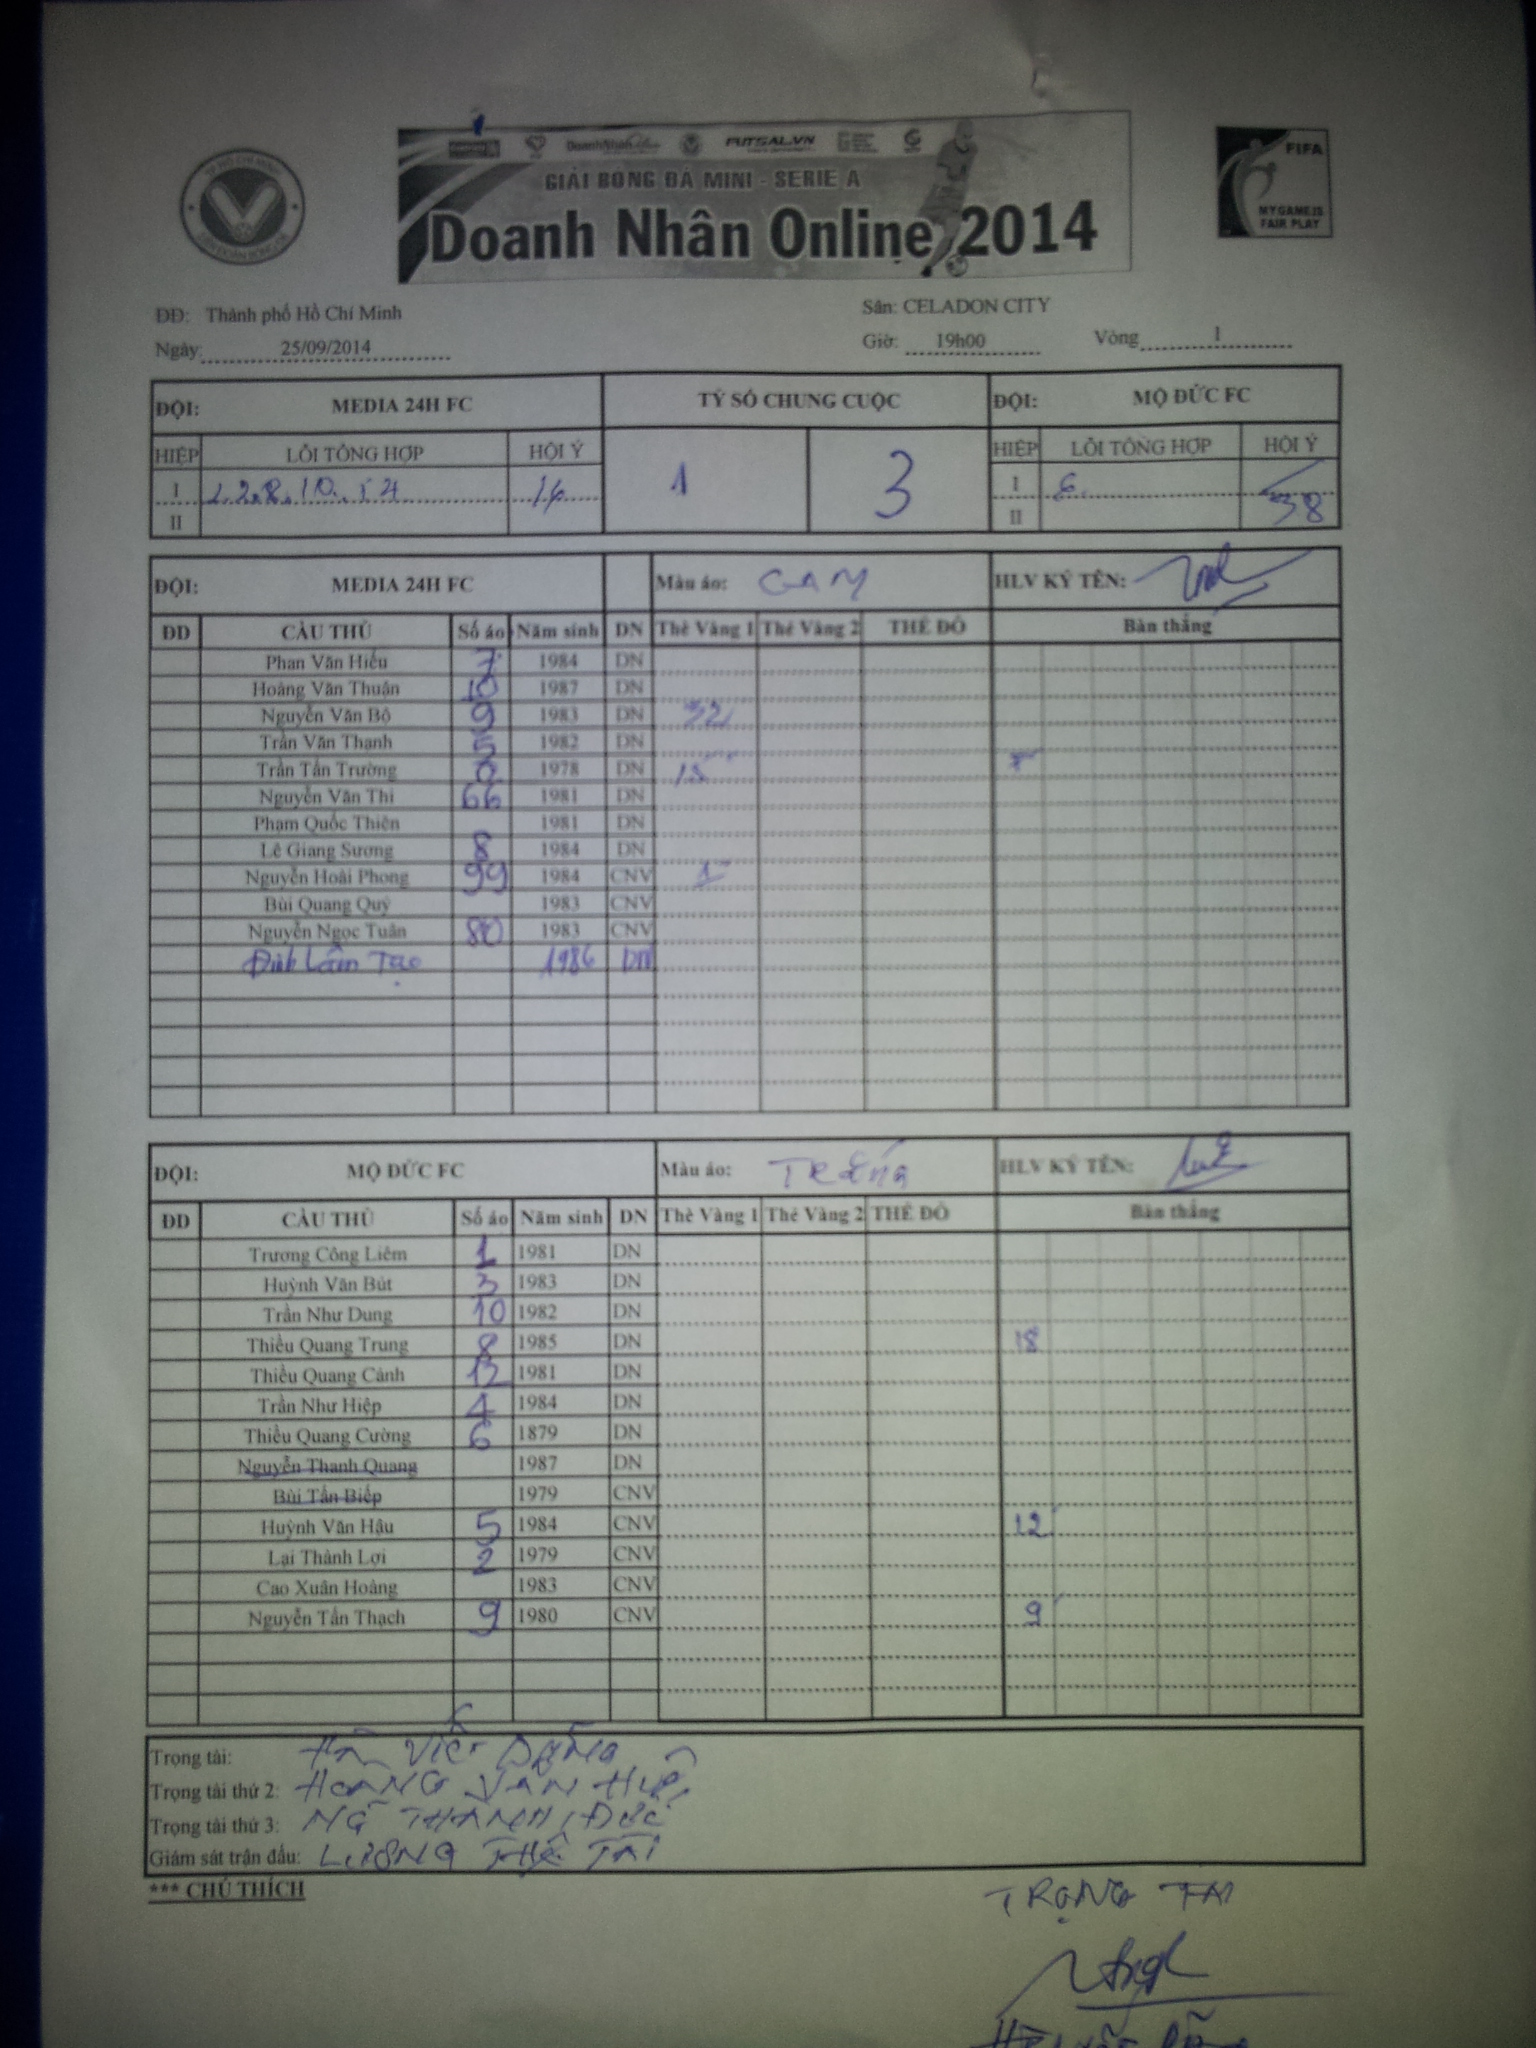 TP HỒ CHÍ MINH
LIÊN ĐOÀN BÓNG ĐÁ
DoanhNhân FUTSAL.VN
GIẢI BÓNG ĐÁ MINI - SERIE A
Doanh Nhân Online 2014
FIFA
MY GAME IS
FAIR PLAY
ĐĐ: Thành phố Hồ Chí Minh Sân: CELADON CITY
Ngày: 25/09/2014 Giờ: 19h00 Vòng 1
ĐỘI: MEDIA 24H FC TỶ SỐ CHUNG CUỘC ĐỘI: MỘ ĐỨC FC
HIỆP LỖI TỔNG HỢP HỘI Ý 1 3 HIỆP LỖI TỔNG HỢP HỘI Ý
I 1.2.8.10.14 16 I 6
II II 38
ĐỘI: MEDIA 24H FC Màu áo: CAM HLV KÝ TÊN:
ĐD CẦU THỦ Số áo Năm sinh DN Thẻ Vàng 1 Thẻ Vàng 2 THẺ ĐỎ Bàn thắng
Phan Văn Hiếu 7 1984 DN
Hoàng Văn Thuận 10 1987 DN
Nguyễn Văn Bộ 9 1983 DN 32
Trần Văn Thạnh 5 1982 DN
Trần Tấn Trường 1978 DN 15
Nguyễn Văn Thi 66 1981 DN
Phạm Quốc Thiên 1981 DN
Lê Giang Sương 8 1984 DN
Nguyễn Hoài Phong 99 1984 CNV 1
Bùi Quang Quý 1983 CNV
Nguyễn Ngọc Tuân 80 1983 CNV
Đinh Lâm Tạo 1986 DN
ĐỘI: MỘ ĐỨC FC Màu áo: TRẮNG HLV KÝ TÊN:
ĐD CẦU THỦ Số áo Năm sinh DN Thẻ Vàng 1 Thẻ Vàng 2 THẺ ĐỎ Bàn thắng
Trương Công Liêm 1 1981 DN
Huỳnh Văn Bút 3 1983 DN
Trần Như Dung 10 1982 DN
Thiều Quang Trung 8 1985 DN 18
Thiều Quang Cảnh 12 1981 DN
Trần Như Hiệp 4 1984 DN
Thiều Quang Cường 6 1879 DN
Nguyễn Thanh Quang 1987 DN
Bùi Tấn Biếp 1979 CNV
Huỳnh Văn Hậu 5 1984 CNV 12
Lại Thành Lợi 2 1979 CNV
Cao Xuân Hoàng 1983 CNV
Nguyễn Tấn Thạch 9 1980 CNV 9
Trọng tài: VIẾT DŨNG
Trọng tài thứ 2: HOÀNG VĂN HUỆ
Trọng tài thứ 3: THANH ĐỨC
Giám sát trận đấu: LƯƠNG THẾ TÀI
*** CHÚ THÍCH
TRỌNG TÀI